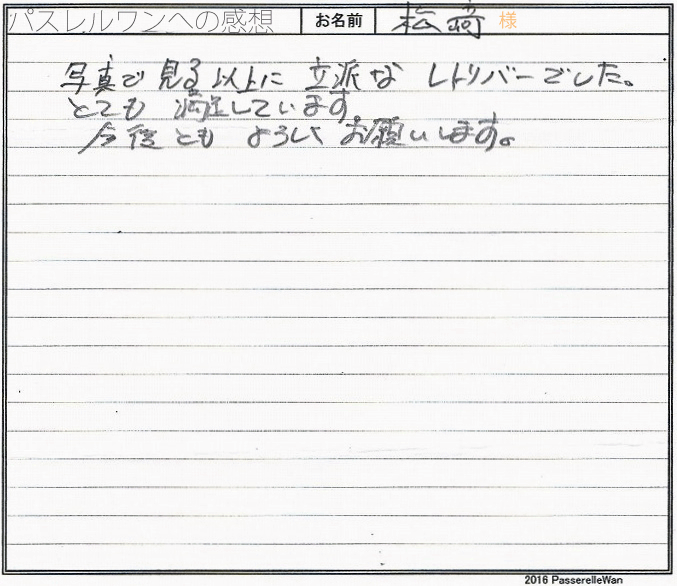 パスレルワンへの感想 お名前 松崎 様
写真で見る以上に立派なレトリバーでした。
とても満足しています。
今後ともよろしくお願いします。
2016 PasserelleWan